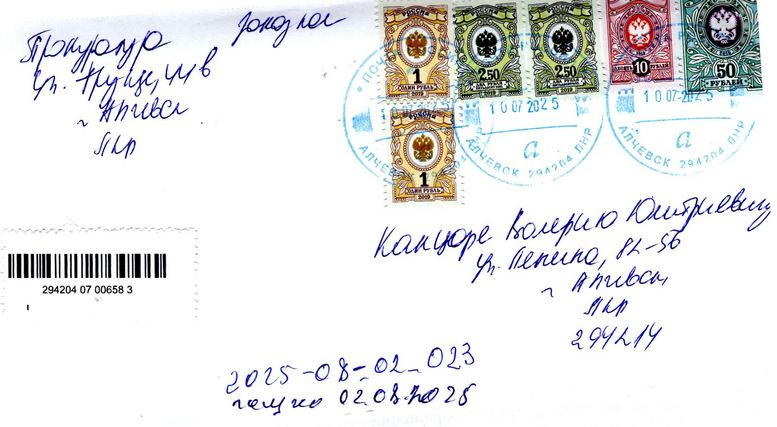 Прокуратура
ул. Фрунзе,
г Алчевск
ЛНР
РОССИЯ
1
ОДИН РУБЛЬ
2019
РОССИЯ
2.50
2019
РОССИЯ
2.50
2019
10
ДЕСЯТЬ РУБЛЕЙ
50
РУБЛЕЙ
РОССИЯ
1
ОДИН РУБЛЬ
2019
10 07 2025
АЛЧЕВСК 294204 ЛНР
10 07 2025
а
АЛЧЕВСК 294204 ЛНР
10 07 2025
а
АЛЧЕВСК 294204 ЛНР
Валерию Дмитриевичу
ул. Ленина, 82-56
г Алчевск
ЛНР
294214
294204 07 00658 3
2025-08-02_023
02.08.2025